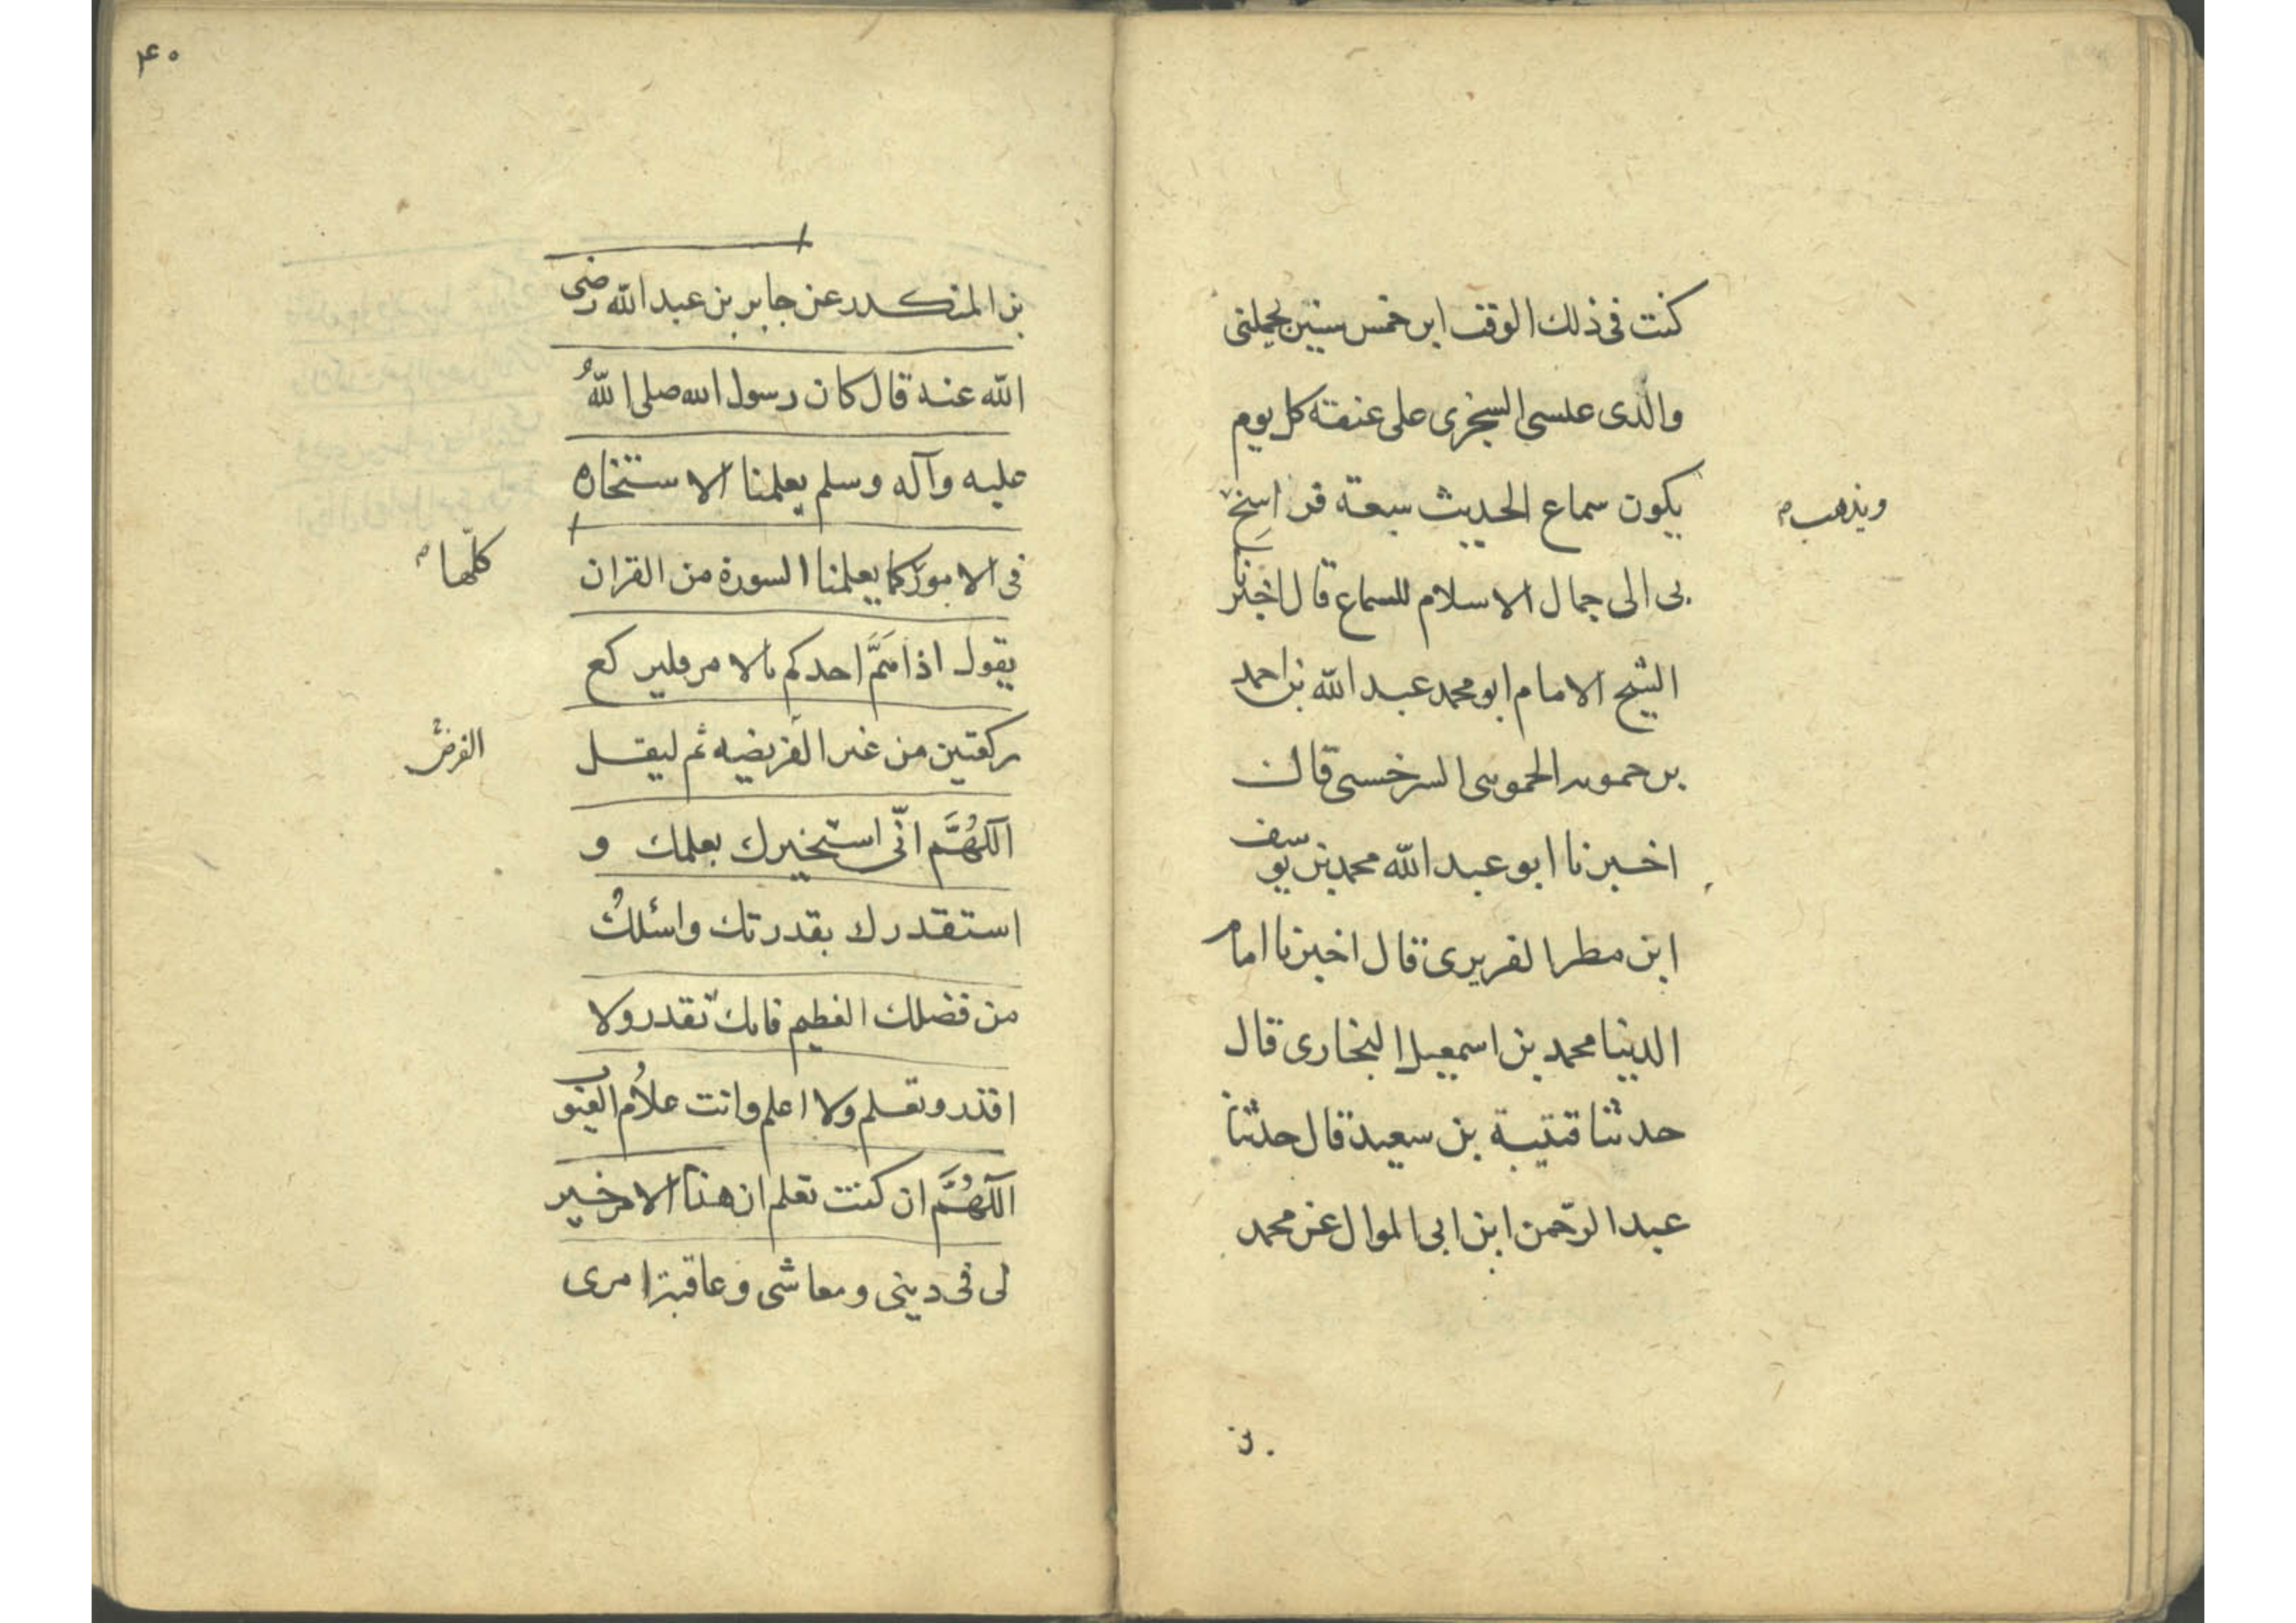 كنت فى ذلك الوقت ابن خمس سنين يحملنى
والدى عيسى السجزى على عنقه كل يوم
يكون سماع الحديث سبعة فراسخ
ويذهب
بى الى جمال الاسلام للسماع قال اخبرنا
الشيخ الامام ابو محمد عبد الله بن احمد
بن حمويه الحموى السرخسى قال
اخبرنا ابو عبد الله محمد بن يوسف
ابن مطر الفربرى قال اخبرنا امام
الدنيا محمد بن اسمعيل البخارى قال
حدثنا قتيبة بن سعيد قال حدثنا
عبد الرحمن ابن ابى الموال عن محمد
۴۰
بن المنكدر عن جابر بن عبد الله رضى
الله عنه قال كان رسول الله صلى اللهُ
عليه وآله وسلم يعلمنا الاستخاره
فى الامور كما يعلمنا السورة من القران
كلّها
يقول اذا هَمَّ احدكم بالامر فليركع
ركعتين من غير الفريضيه ثم ليقل
الفرض
اللّهُمَّ انّى استخيرك بعلمك و
استقدرك بقدرتك واسئلكُ
من فضلك العظيم فانك تقدر ولا
اقدر وتعلم ولا اعلم وانت علاّم الغيوب
اللّهُمَّ ان كنت تعلم ان هذا الامر خير
لى فى دينى ومعاشى وعاقبة امرى